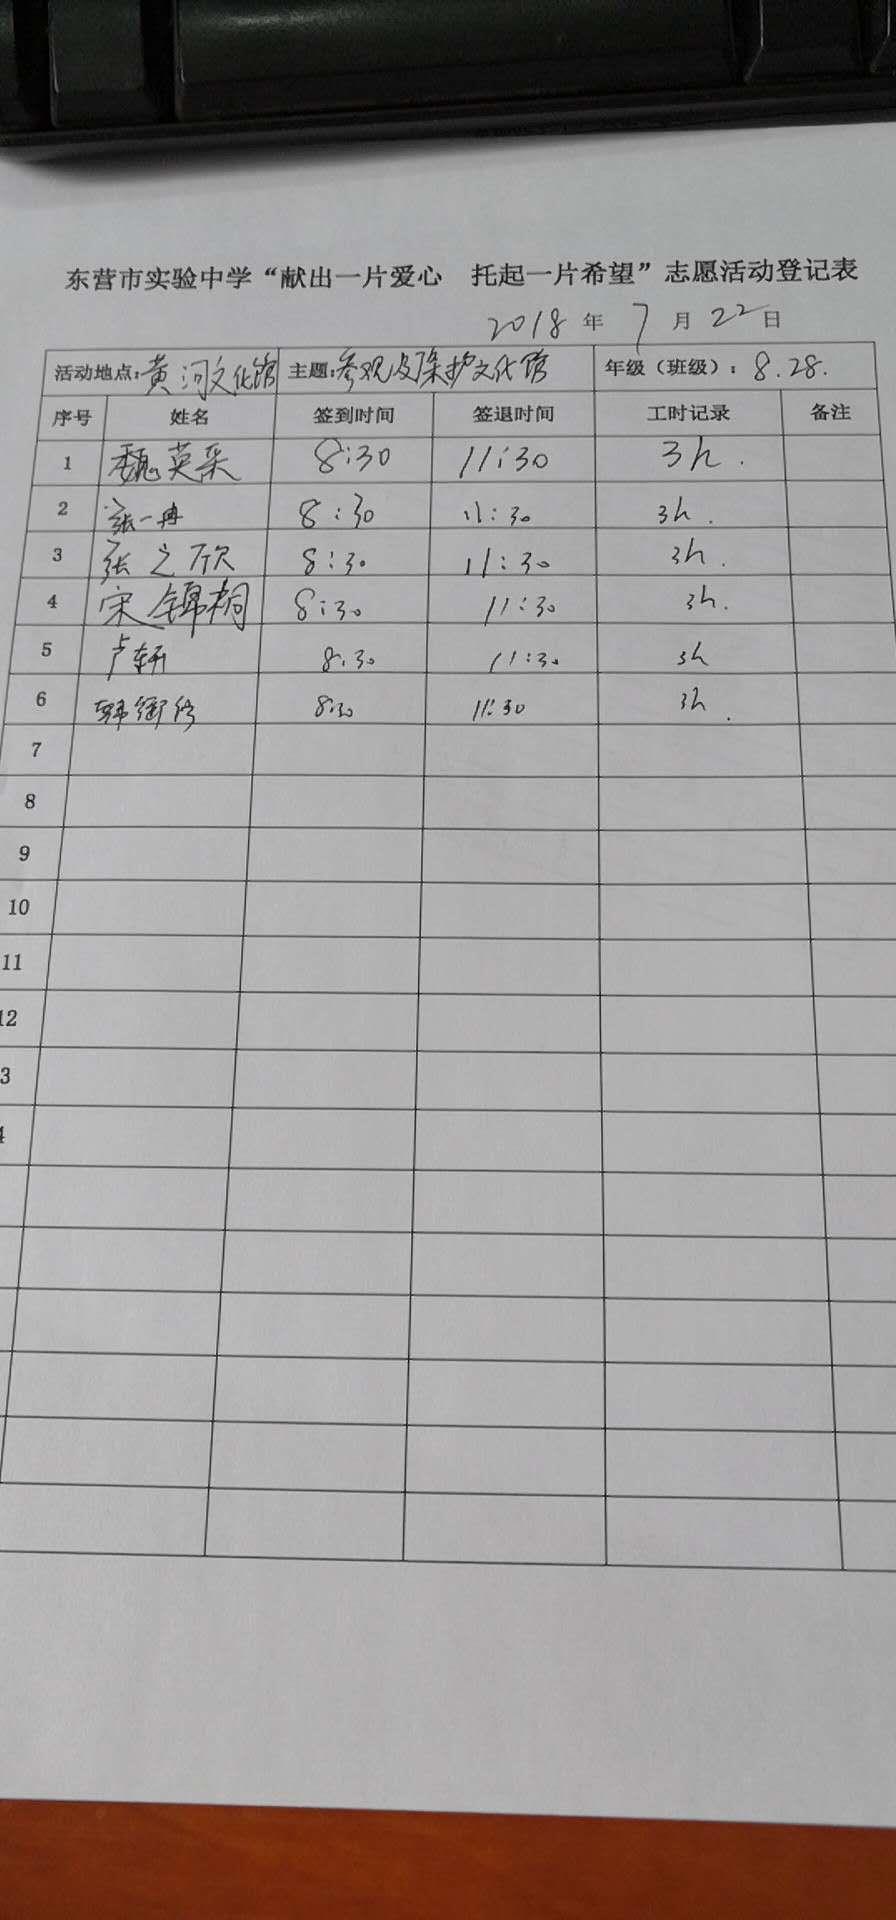 东营市实验中学“献出一片爱心　托起一片希望”志愿活动登记表
2018 年 7 月 22 日
活动地点:黄河文化馆 主题:参观及保护文化馆 年级（班级）: 8.28.
序号 姓名 签到时间 签退时间 工时记录 备注
1 魏英采 8:30 11:30 3h.
2 张一冉 8:30 11:30 3h.
3 张之欣 8:30 11:30 3h.
4 宋锦桐 8:30 11:30 3h.
5 卢轩 8:30 11:30 3h
6 韩衙 8:30 11:30 3h.
7
8
9
10
11
12
3
4